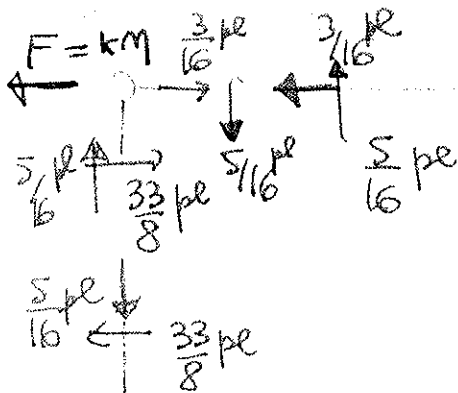 F = kM 3/16 pl 3/16 pl
5/16 pl 33/8 pl 5/16 pl 5/16 pl
5/16 pl 33/8 pl